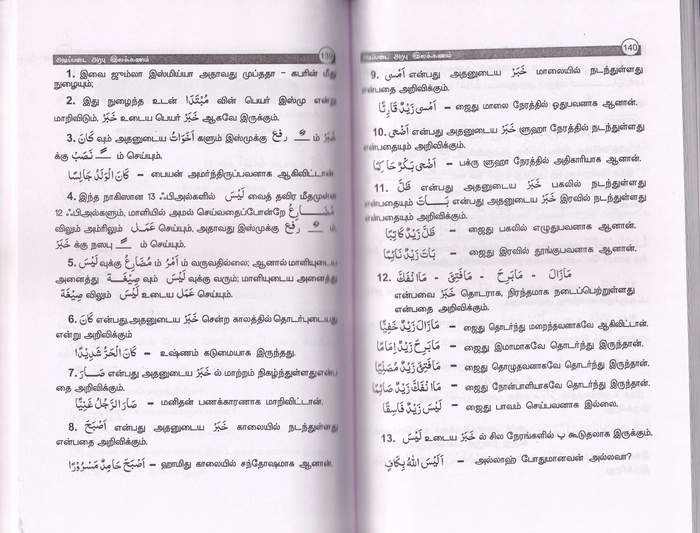 அடிப்படை அரபு இலக்கணம் 139
1. இவை ஜும்லா இஸ்மிய்யா அதாவது முப்ததா - கபரின் மீது
நுழையும்;
2. இது நுழைந்த உடன் مُبْتَدَا வின் பெயர் இஸ்மு என்று
மாறிவிடும். خَبَرْ உடைய பெயர் خَبَرْ ஆகவே இருக்கும்.
3. كَانَ வும் அதனுடைய اَخَوَاتْ களும் இஸ்முக்கு رفع ம் خَبَرْ
க்கு نَصَبْ ம் செய்யும்.
كَانَ الْوَلَدُ جَالِسًا – பையன் அமர்ந்திருப்பவனாக ஆகிவிட்டான்.
4. இந்த நாகிஸான 13 ஃபிஅல்களில் لَيْسَ வைத் தவிர மீதமுள்ள
12 ஃபிஅல்களும், மாளியில் அமல் செய்வதைப்போன்றே مُضَارِعْ
விலும் அம்ரிலும் عَمَلْ செய்யும், அதாவது இஸ்முக்கு رفع ம்
خَبَرْ க்கு நஸபு ம் செய்யும்.
5. لَيْسَ வுக்கு مُضَارِعْ ம் اَمْرْ ம் வருவதில்லை; ஆனால் மாளியுடைய
அனைத்து صِيْغَةْ வும் لَيْسَ வுக்கு வரும்; மாளியுடைய அனைத்து
صِيْغَةْ விலும் لَيْسَ உடைய عَمَلْ செய்யும்.
6. كَانَ என்பது,அதனுடைய خَبَرْ சென்ற காலத்தில் தொடர்புடையது
என்று அறிவிக்கும்
كَانَ الْحَرُّ شَدِيْدًا – உஷ்ணம் கடுமையாக இருந்தது.
7. صَارَ என்பது அதனுடைய خَبَرْ ல் மாற்றம் நிகழ்ந்துள்ளதுஎன்ப
தை அறிவிக்கும்.
صَارَ الرَّجُلُ غَنِيًّا – மனிதன் பணக்காரனாக மாறிவிட்டான்.
8. اَصْبَحَ என்பது அதனுடைய خَبَرْ காலையில் நடந்துள்ளது
என்பதை அறிவிக்கும்.
اَصْبَحَ حَامِدٌ مَسْرُوْرًا – ஹாமிது காலையில் சந்தோஷமாக ஆனான்.
அடிப்படை அரபு இலக்கணம் 140
9. اَمْسٰى என்பது அதனுடைய خَبَرْ மாலையில் நடந்துள்ளது
என்பதை அறிவிக்கும்.
اَمْسٰى زَيْدٌ قَارِئًا – ஜைது மாலை நேரத்தில் ஓதுபவனாக ஆனான்.
10. اَضْحٰى என்பது அதனுடைய خَبَرْ ளுஹா நேரத்தில் நடந்துள்ளது
என்பதையும் அறிவிக்கும்.
اَضْحٰى بَكْرٌ حَاكِمًا – பக்ரு ளுஹா நேரத்தில் அதிகாரியாக ஆனான்.
11. ظَلَّ என்பது அதனுடைய خَبَرْ பகலில் நடந்துள்ளது
என்பதையும் بَــاتَ என்பது அதனுடைய خَبَرْ இரவில் நடந்துள்ளது
என்பதையும் அறிவிக்கும்.
ظَلَّ زَيْدٌ كَاتِبًا – ஜைது பகலில் எழுதுபவனாக ஆனான்.
بَاتَ زَيْدٌ نَائِمًا – ஜைது இரவில் தூங்குபவனாக ஆனான்.
12. مَازَالَ - مَابَرِحَ - مَافَتِئَ - مَاانْفَكَّ
என்பவை خَبَرْ தொடராக, நிரந்தமாக நடைப்பெற்றுள்ளது
என்பதை அறிவிக்கும்.
مَازَالَ زَيْدٌ خَفِيًّا – ஜைது தொடர்ந்து மறைந்தவனாகவே ஆகிவிட்டான்.
مَابَرِحَ زَيْدٌ اِمَامًا – ஜைது இமாமாகவே தொடர்ந்து இருந்தான்.
مَافَتِئَ زَيْدٌ مُصَلِّيًا – ஜைது தொழுதவனாகவே தொடர்ந்து இருந்தான்.
مَاانْفَكَّ زَيْدٌ صَائِمًا – ஜைது நோன்பாளியாகவே தொடர்ந்து இருந்தான்.
لَيْسَ زَيْدٌ فَاسِقًا – ஜைது பாவம் செய்பவனாக இல்லை.
13. لَيْسَ உடைய خَبَرْ ல் சில நேரங்களில் ب கூடுதலாக இருக்கும்.
اَلَيْسَ اللهُ بِكَافٍ – அல்லாஹ் போதுமானவன் அல்லவா?